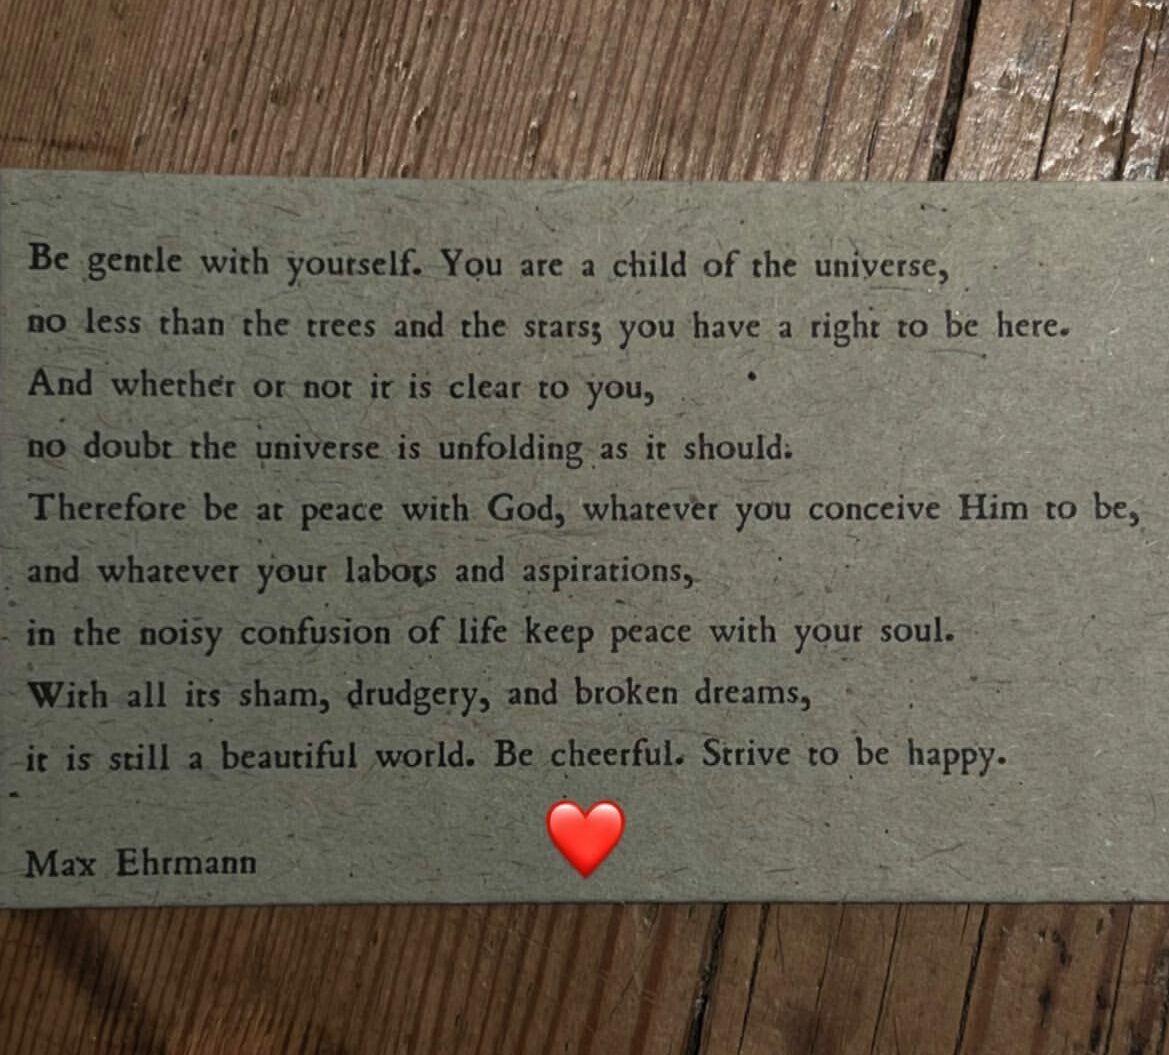 Be gentle with yourself. You are a child of the universe,
no less than the trees and the stars; you have a right to be here.
And whether or not it is clear to you,
no doubt the universe is unfolding as it should.
Therefore be at peace with God, whatever you conceive Him to be,
and whatever your labors and aspirations,
in the noisy confusion of life keep peace with your soul.
With all its sham, drudgery, and broken dreams,
it is still a beautiful world. Be cheerful. Strive to be happy.
Max Ehrmann